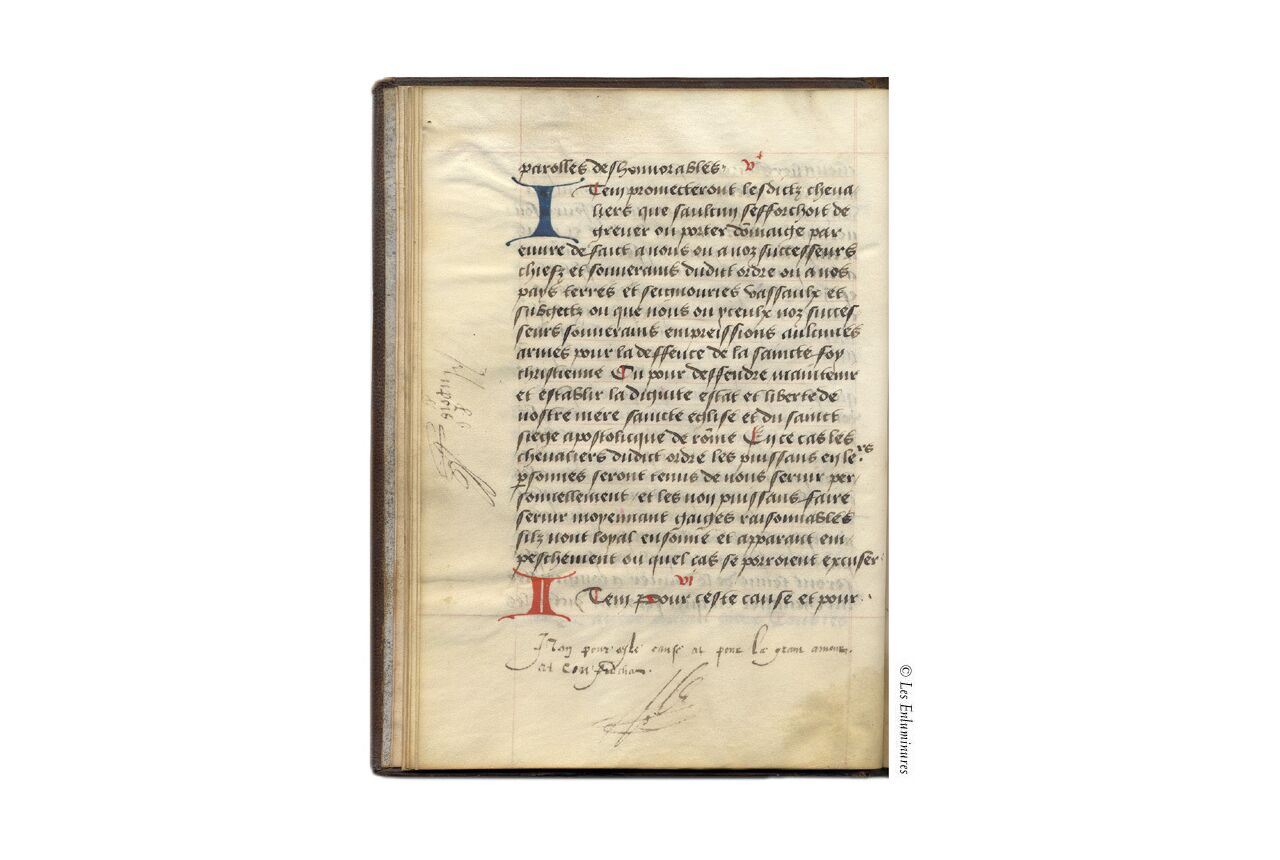 parolles deshonnorables. v
Item promecteront lesdictz cheva
liers que saulcun sefforchoit de
grever ou porter dōmaige par
euvre de faict a nous ou a noz successeurs
chiefz et souverains dudict ordre ou a nos
pays terres et seignouries vassaulx et
subgectz ou que nous ou yceulx noz succes
seurs souverains empreissions aulcunes
armes pour la deffence de la saincte foy
christienne Ou pour deffendre maintenir
et establir la dignite estat et liberte de
nostre mere saincte eglise et du sainct
siege apostolicque de rōme En ce cas les
chevaliers dudict ordre les puissans en le.rs
psonnes seront tenus de nous servir per
sonnellement et les non puissans faire
servir moyennant gaiges raisonnables
silz nont loyal ensonne et apparant em
peschement ou quel cas se porroient excuser
vi
Item pour ceste cause et pour
Itay pour ceste cause et pour le grant amour
et
© Les Enluminures